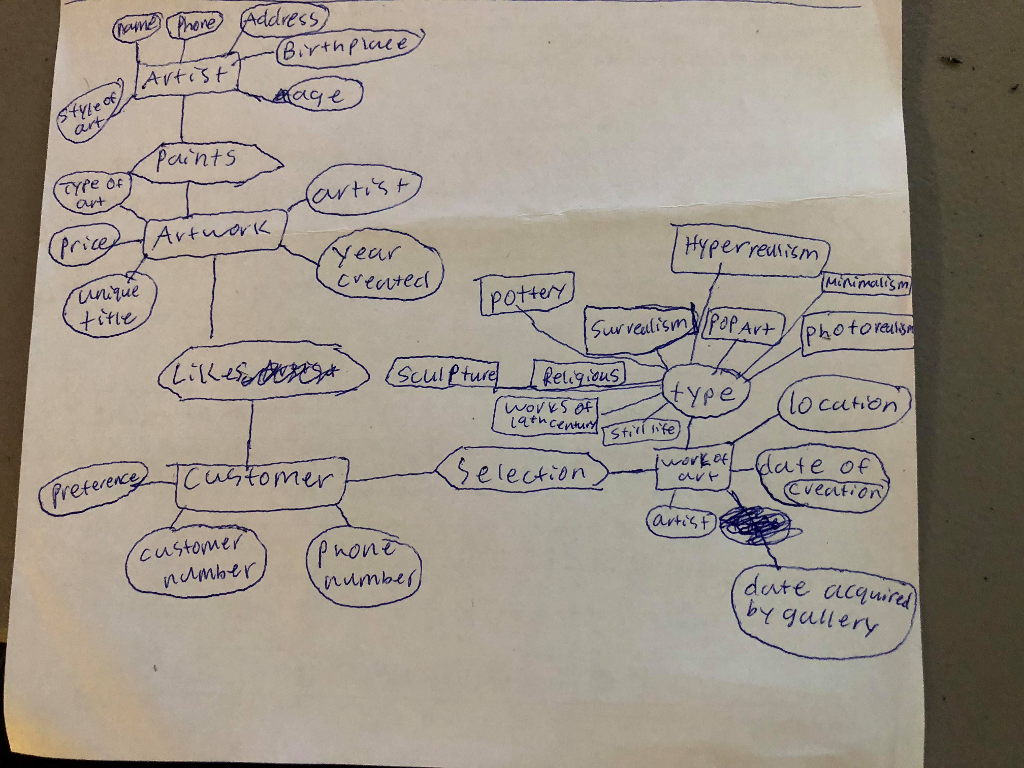 name
Phone
Address
Birthplace
Artist
age
style of
art
Paints
Type of
art
artist
Price
Artwork
year
created
unique
title
Hyperrealism
Minimalism
Pottery
Surrealism
Pop Art
Photorealism
Likes
Sculpture
Religious
type
works of
19th century
Still life
location
preference
Customer
Selection
work of
art
date of
creation
artist
customer
number
phone
number
date acquired
by gallery